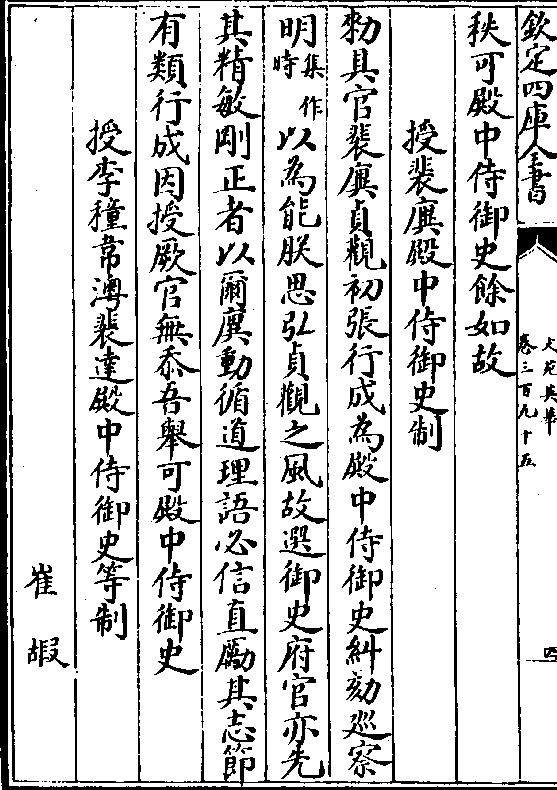 欽定四庫全書
文苑英華
卷三百九十五
四
秩可殿中侍御史餘如故
授裴廙殿中侍御史制
勅具官裴廙貞觀初張行成為殿中侍御史糾劾巡察
明集作時以為能朕思弘貞觀之風故選御史府官亦先
其精敏剛正者以爾廙動循道理語必信直勵其志節
有類行成因授厥官無忝吾舉可殿中侍御史
授李穜韋澳裴達殿中侍御史等制
崔嘏